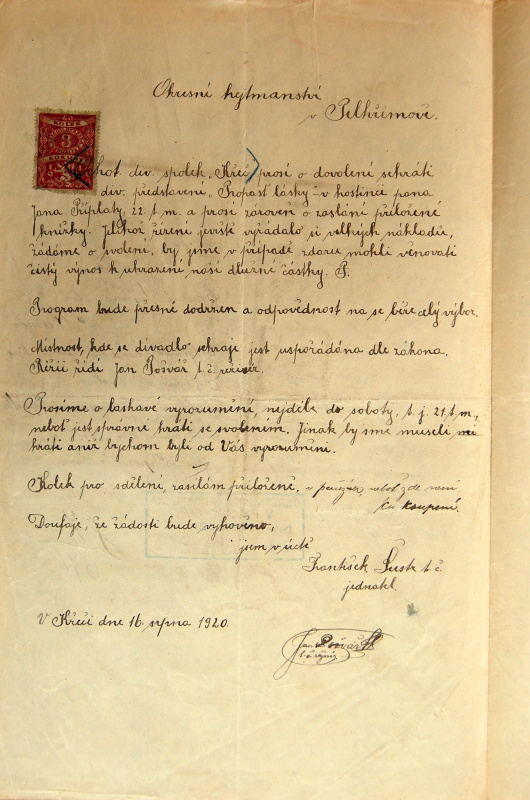 Okresní hejtmanství
v Pelhřimově.
KOLEK
3
Ochot. div. spolek „Křeč" prosí o dovolení sehráti
div. představení „Propast lásky" v hostinci pana
Jana Příplaty, 22. t. m. a prosí zároveň o zaslání přiložené
knížky. Jelikož zřízení jeviště vyžádalo si velkých nákladů,
žádáme o svolení, by jsme v případě zdaru mohli věnovati
čistý výnos k uhrazení naší dlužné částky.
Program bude přesně dodržen a odpovědnost na se běře celý výbor.
Místnost, kde se divadlo sehraje jest uspořádána dle zákona.
Režii řídí Jan Pošvář t. č. režisér.
Prosíme o laskavé vyrozumění, nejdéle do soboty, t. j. 21. t. m.,
neboť jest správné hráti se svolením. Jinak by sme museli
hráti aniž bychom byli od Vás vyrozuměni.
Kolek pro sdělení, zasílám přiloženě, v penězích, neboť zde není
ku koupení.
Doufaje, že žádosti bude vyhověno,
jsem v úctě
František Šusta t. č.
jednatel.
V Křeči dne 16. srpna 1920.
Jan Pošvář
t. č. režisér